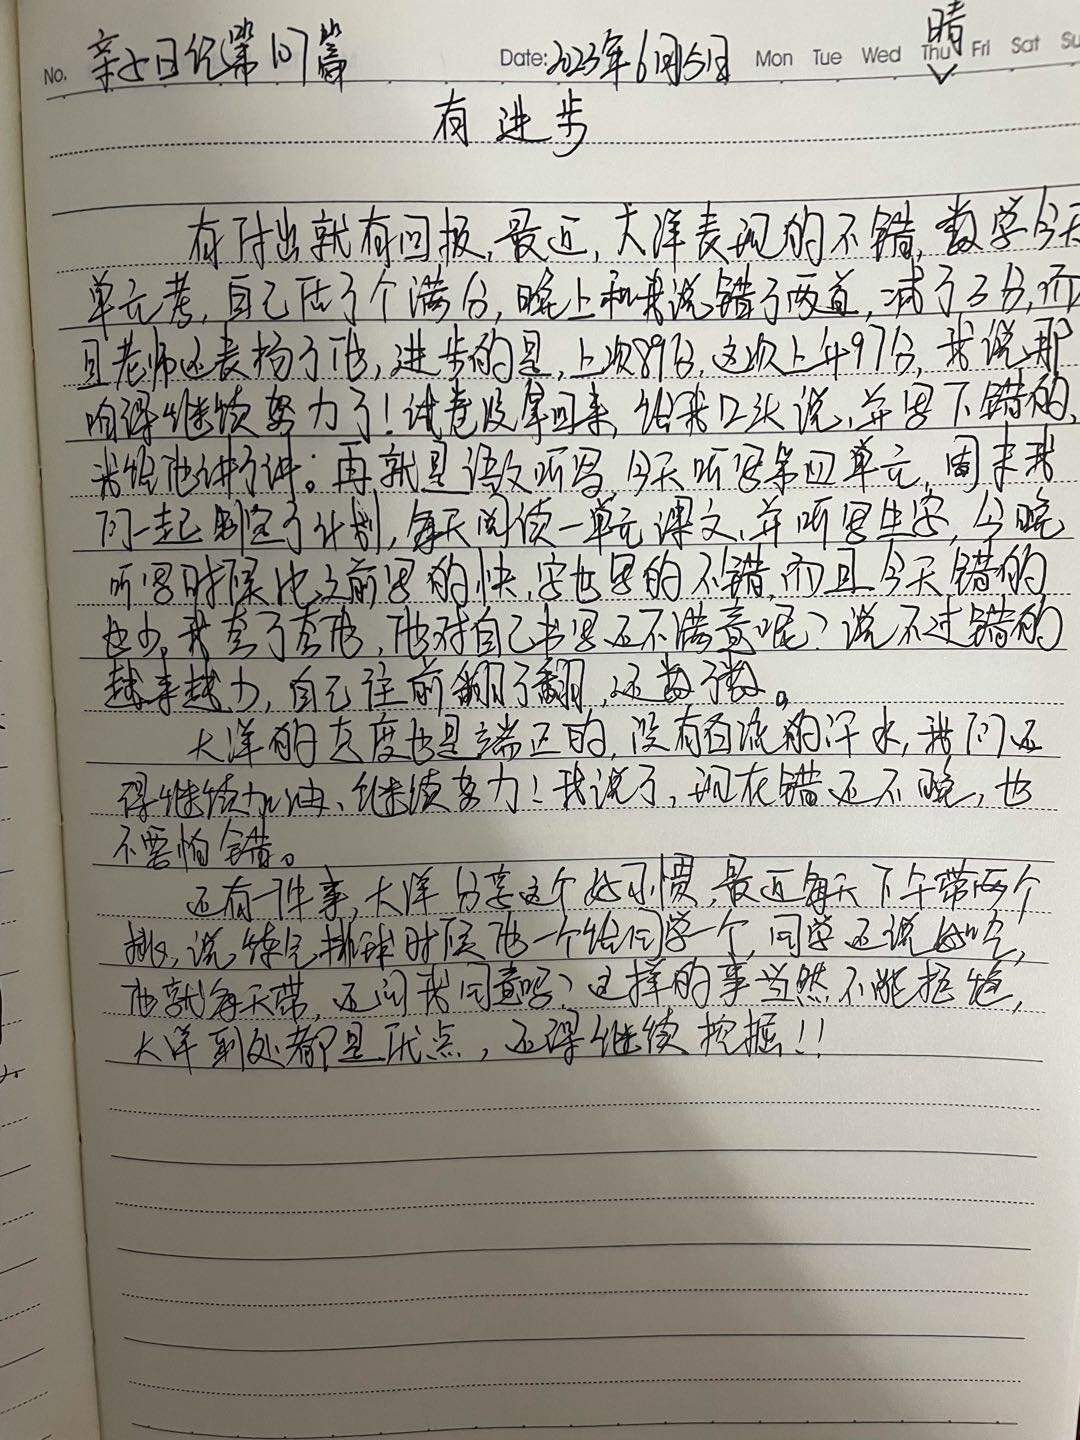 No. 亲子日记第107篇 Date: 2023年6月15日 Mon Tue Wed Thu Fri Sat Su
晴
有进步
有付出就有回报,最近,大洋表现的不错,数学今天
单元考,自己估了个满分,晚上和我说错了两道,减了3分,而
且老师还表扬了他,进步的是,上次89分,这次上升97分,我说那
咱得继续努力了!试卷没拿回来,给我口头说,并写下错的,
我给他讲了讲。再就是语文听写,今天听写第四单元,周末我
们一起制定了计划,每天阅读一单元课文,并听写生字,今晚
听写时候比之前写的快,字也写的不错,而且今天错的
也少,我夸了夸他,他对自己书写还不满意呢?说不过错的
越来越少,自己往前翻了翻,还数了数。
大洋的态度也是端正的,没有白流的汗水,我们还
得继续加油、继续努力!我说了,现在错还不晚,也
不要怕错。
还有一件事,大洋分享这个好习惯,最近每天下午带两个
桃,说练完排球时候他一个给同学一个,同学还说好吃,
他就每天带,还问我同意吗?这样的事当然不能拒绝,
大洋到处都是优点,还得继续挖掘!!